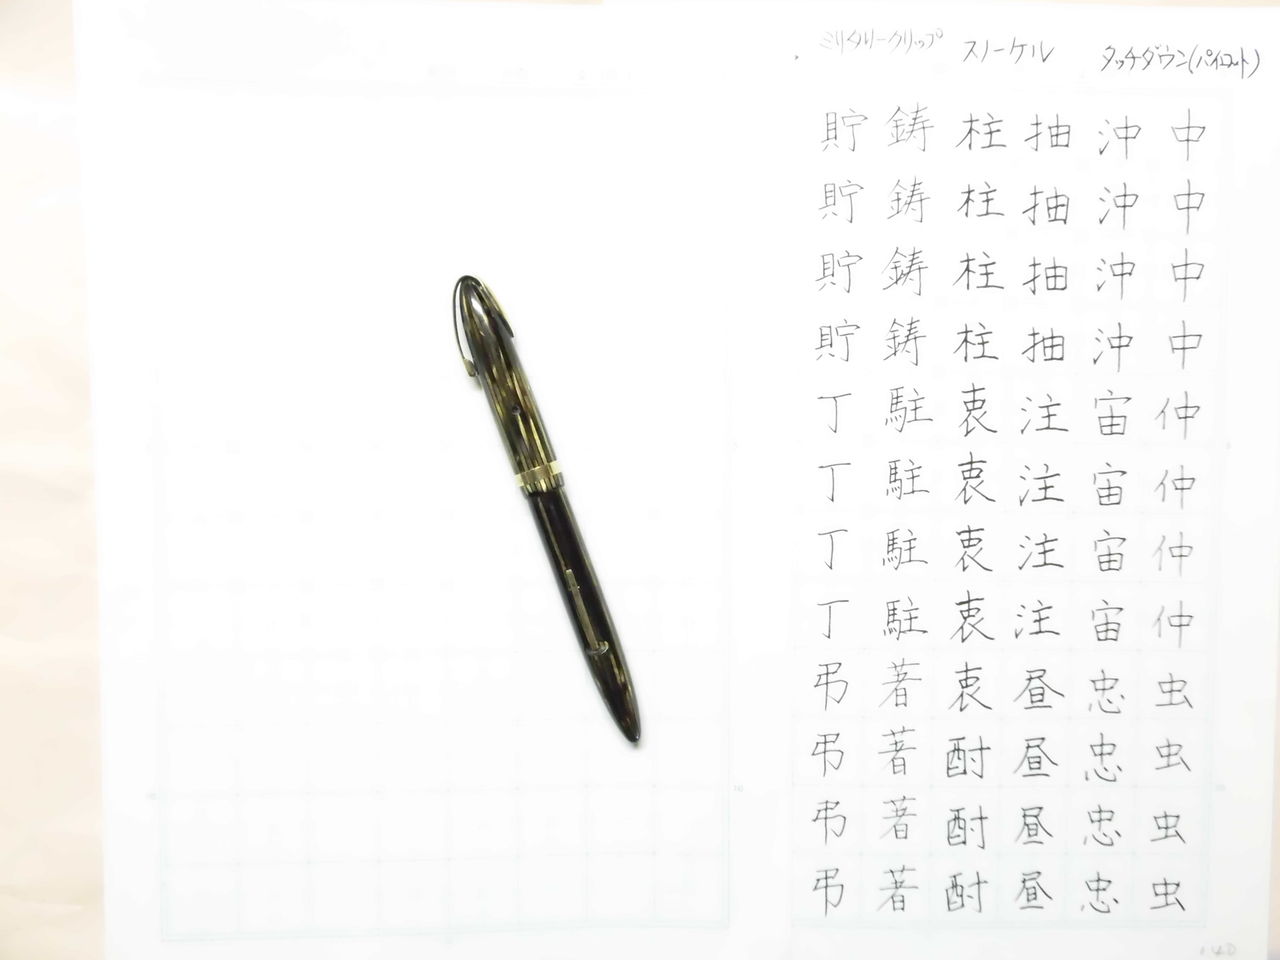 ミリタリークリップ スノーケル タッチダウン(パイロット)
中中中中仲仲仲仲虫虫虫虫
沖沖沖沖宙宙宙宙忠忠忠忠
抽抽抽抽注注注注昼昼昼昼
柱柱柱柱衷衷衷衷衷酎酎酎
鋳鋳鋳鋳駐駐駐駐著著著著
貯貯貯貯丁丁丁丁弔弔弔弔